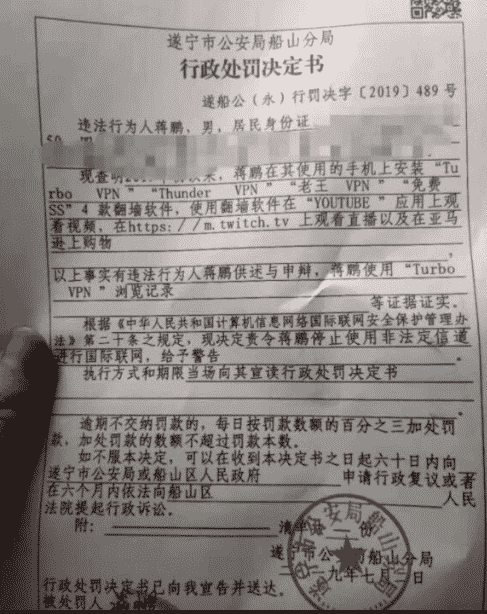 遂宁市公安局船山分局
行政处罚决定书
遂船公（永）行罚决字〔2019〕489 号
违法行为人蒋鹏，男，居民身份证
以来，蒋鹏在其使用的手机上安装“Tu
rbo VPN”“Thunder VPN”“老王 VPN”“免费
SS”4 款翻墙软件，使用翻墙软件在“YOUTUBE”应用上观
看视频，在https://m.twitch.tv 上观看直播以及在亚马
逊上购物
，
以上事实有违法行为人蒋鹏供述与申辩，蒋鹏使用“Turbo
VPN”浏览记录
等证据证实。
根据《中华人民共和国计算机信息网络国际联网安全保护管理办
法》第二十条之规定，现决定责令蒋鹏停止使用非法定信道
进行国际联网，给予警告
执行方式和期限当场向其宣读行政处罚决定书
。
逾期不交纳罚款的，每日按罚款数额的百分之三加处罚
款，加处罚款的数额不超过罚款本数。
如不服本决定，可以在收到本决定书之日起六十日内向
遂宁市公安局或船山区人民政府 申请行政复议或者
在六个月内依法向船山区 人民
法院提起行政诉讼。
附： 清单 份
遂宁市公安局船山分局
九年七月 日
行政处罚决定书已向我宣告并送达。
被处罚人